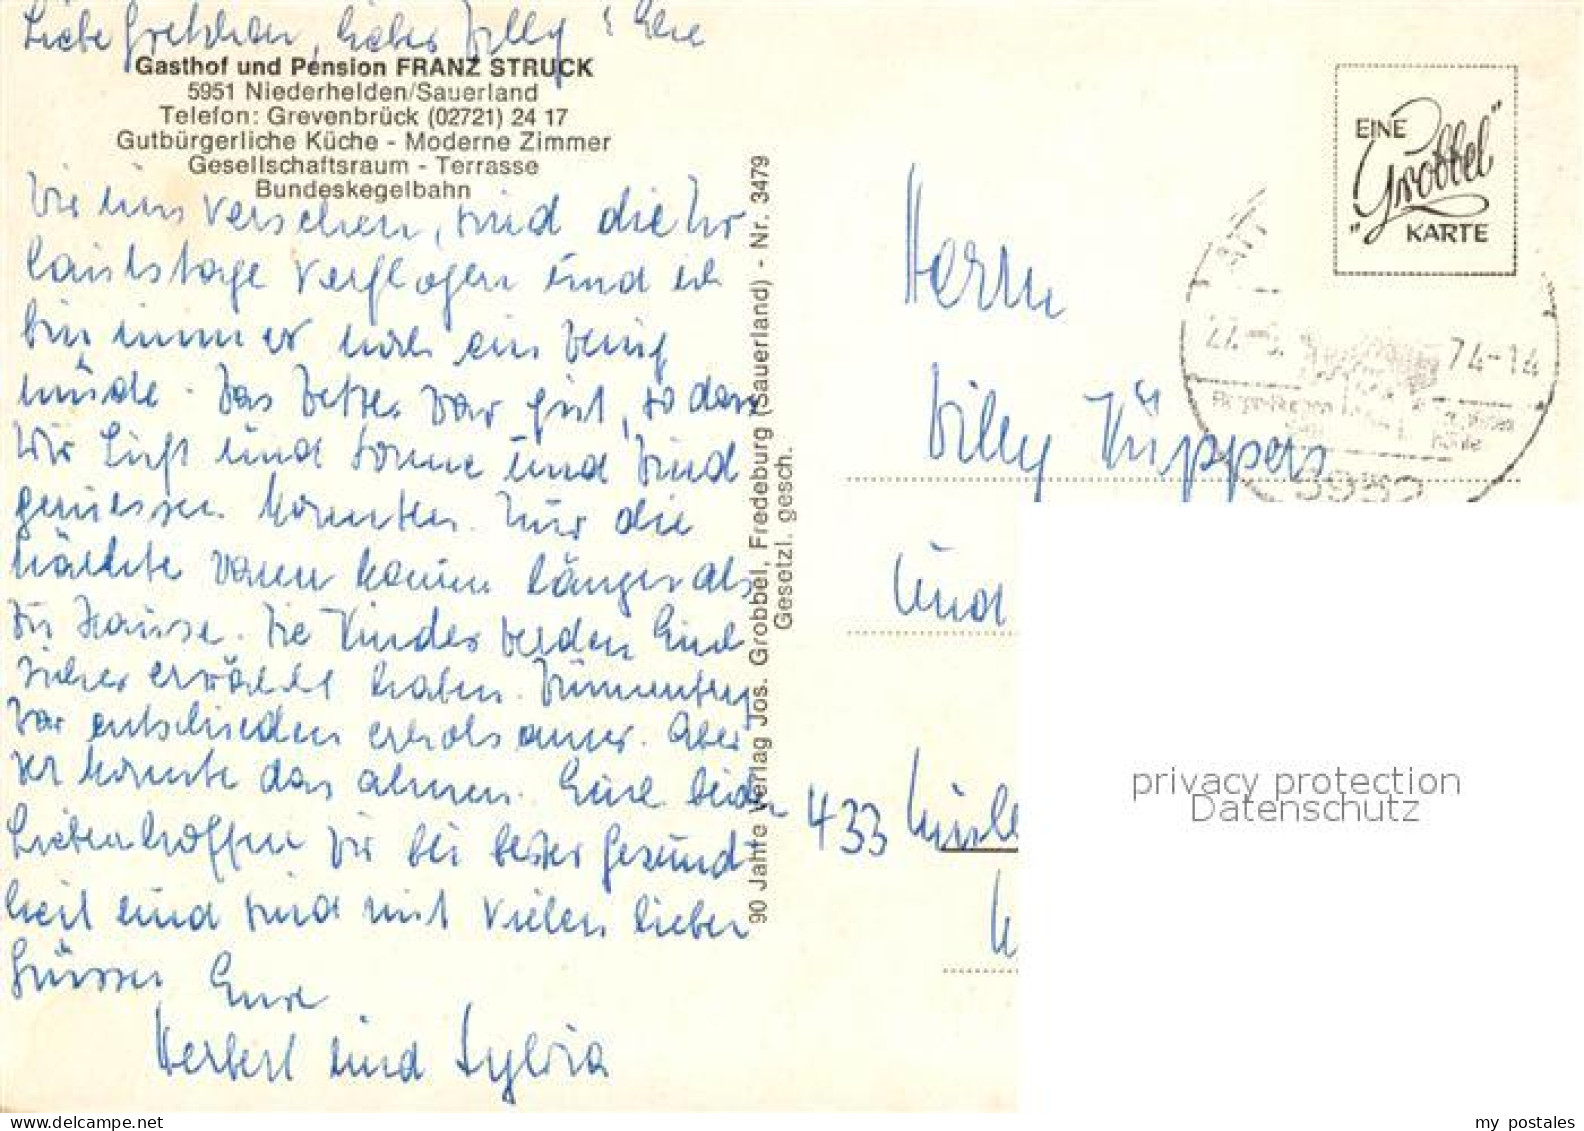 Liebe Gretchen, lieber Willy! Ehe
Gasthof und Pension FRANZ STRUCK
5951 Niederhelden/Sauerland
Telefon: Grevenbrück (02721) 24 17
Gutbürgerliche Küche - Moderne Zimmer
Gesellschaftsraum - Terrasse
Bundeskegelbahn
wir uns versehen, sind die Ur
laubstage verflogen und ich
bin immer noch ein wenig
müde. Das Wetter war gut, so dass
wir Luft und Sonne und Wind
geniessen konnten. Nur die
Nächte waren kaum länger als
zu Hause. Die Kinder werden Euch
sicher erzählt haben.
war entschieden erholsamer. Aber
wer konnte das ahnen. Euch beiden
Lieben hoffen wir bei bester Gesund
heit und sind mit vielen lieben
Grüssen Eure
Herbert und Sylvia
90 Jahre Verlag Jos. Grobbel, Fredeburg (Sauerland) - Nr. 3479
Gesetzl. gesch.
EINE
"Grobbel"
KARTE
74-14
Herrn
Willy Küppers
und
433
privacy protection
Datenschutz
my postales